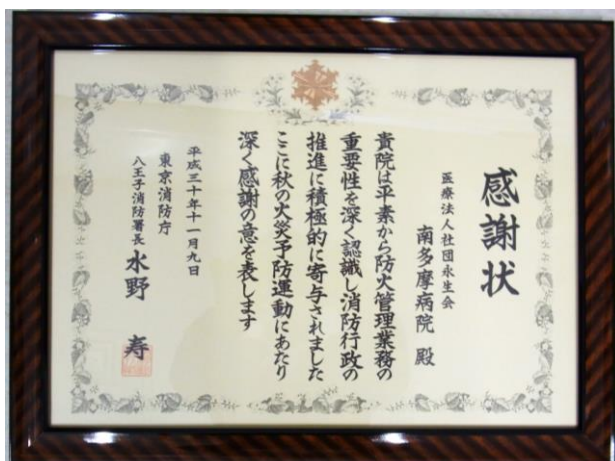 感謝状
医療法人社団永生会
南多摩病院 殿
貴院は平素から防火管理業務の
重要性を深く認識し消防行政の
推進に積極的に寄与されました
ここに秋の火災予防運動にあたり
深く感謝の意を表します
平成三十年十一月九日
東京消防庁
八王子消防署長 水野 寿